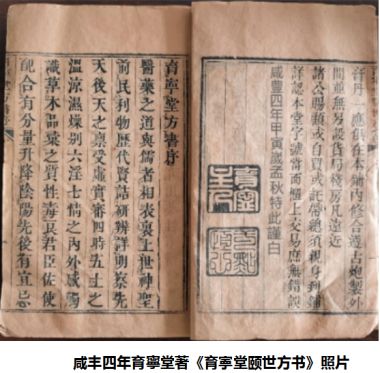 膏丹一應俱在本鋪內修合遵古炮製外
間並無另設貨局棧房凡遠近
諸公賜顧或自買或託帶總須親身到鋪
詳認本堂字號當面櫃上交易庶無錯誤
咸豐四年甲寅歲孟秋特此謹白
育寧堂方書序
醫藥之道與儒者相表裏上世神聖
前民利物歷代賢喆研辨詳明察先
天後天之稟受虛實審四時五土之
溫涼濕燥別六淫七情之內外感傷
識草木品彙之質性毒良君臣佐使
配合有分量升降陰陽先後有宜忌
咸丰四年育寧堂著《育寧堂颐世方书》照片